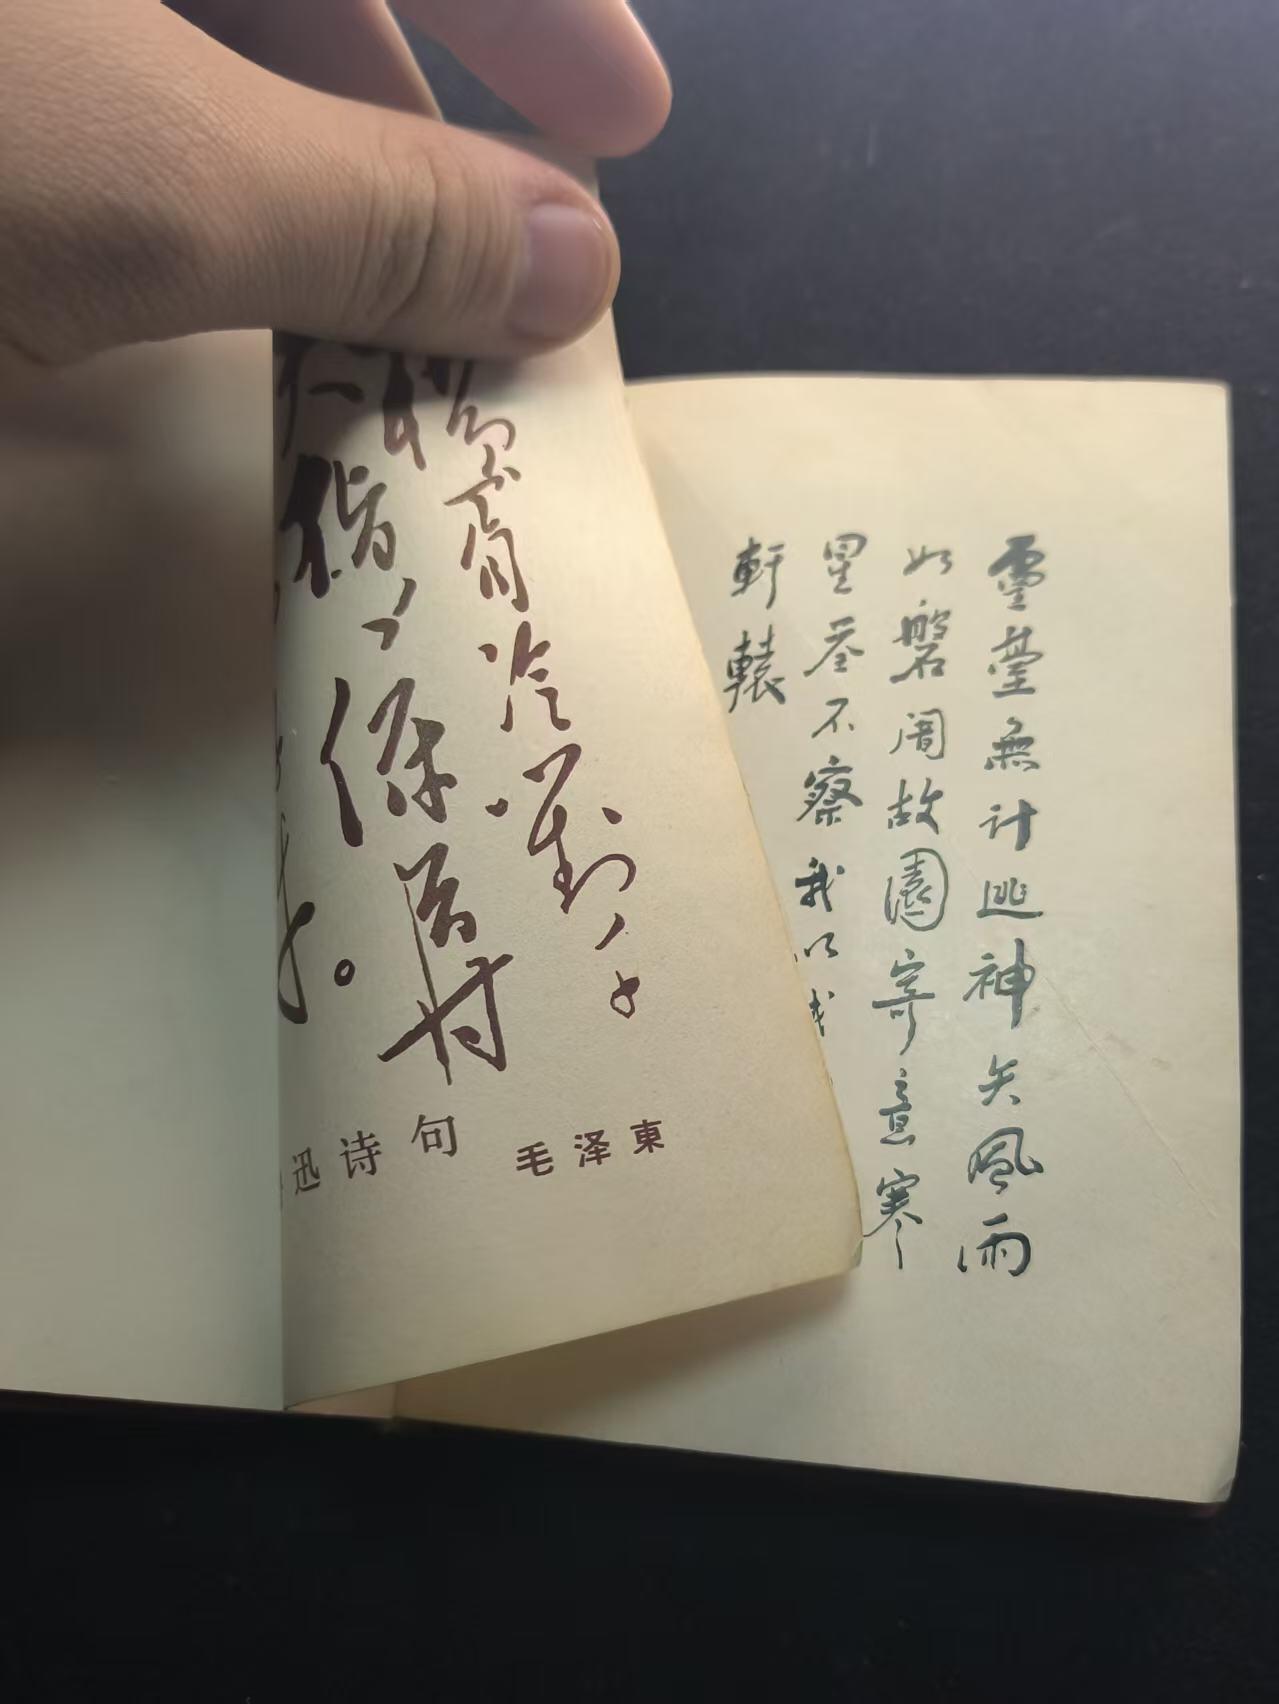 靈臺無計逃神矢風雨
如磐闇故園寄意寒
星荃不察我以我
軒轅
眉冷對千
指、俯首
。
迅诗句
毛泽東